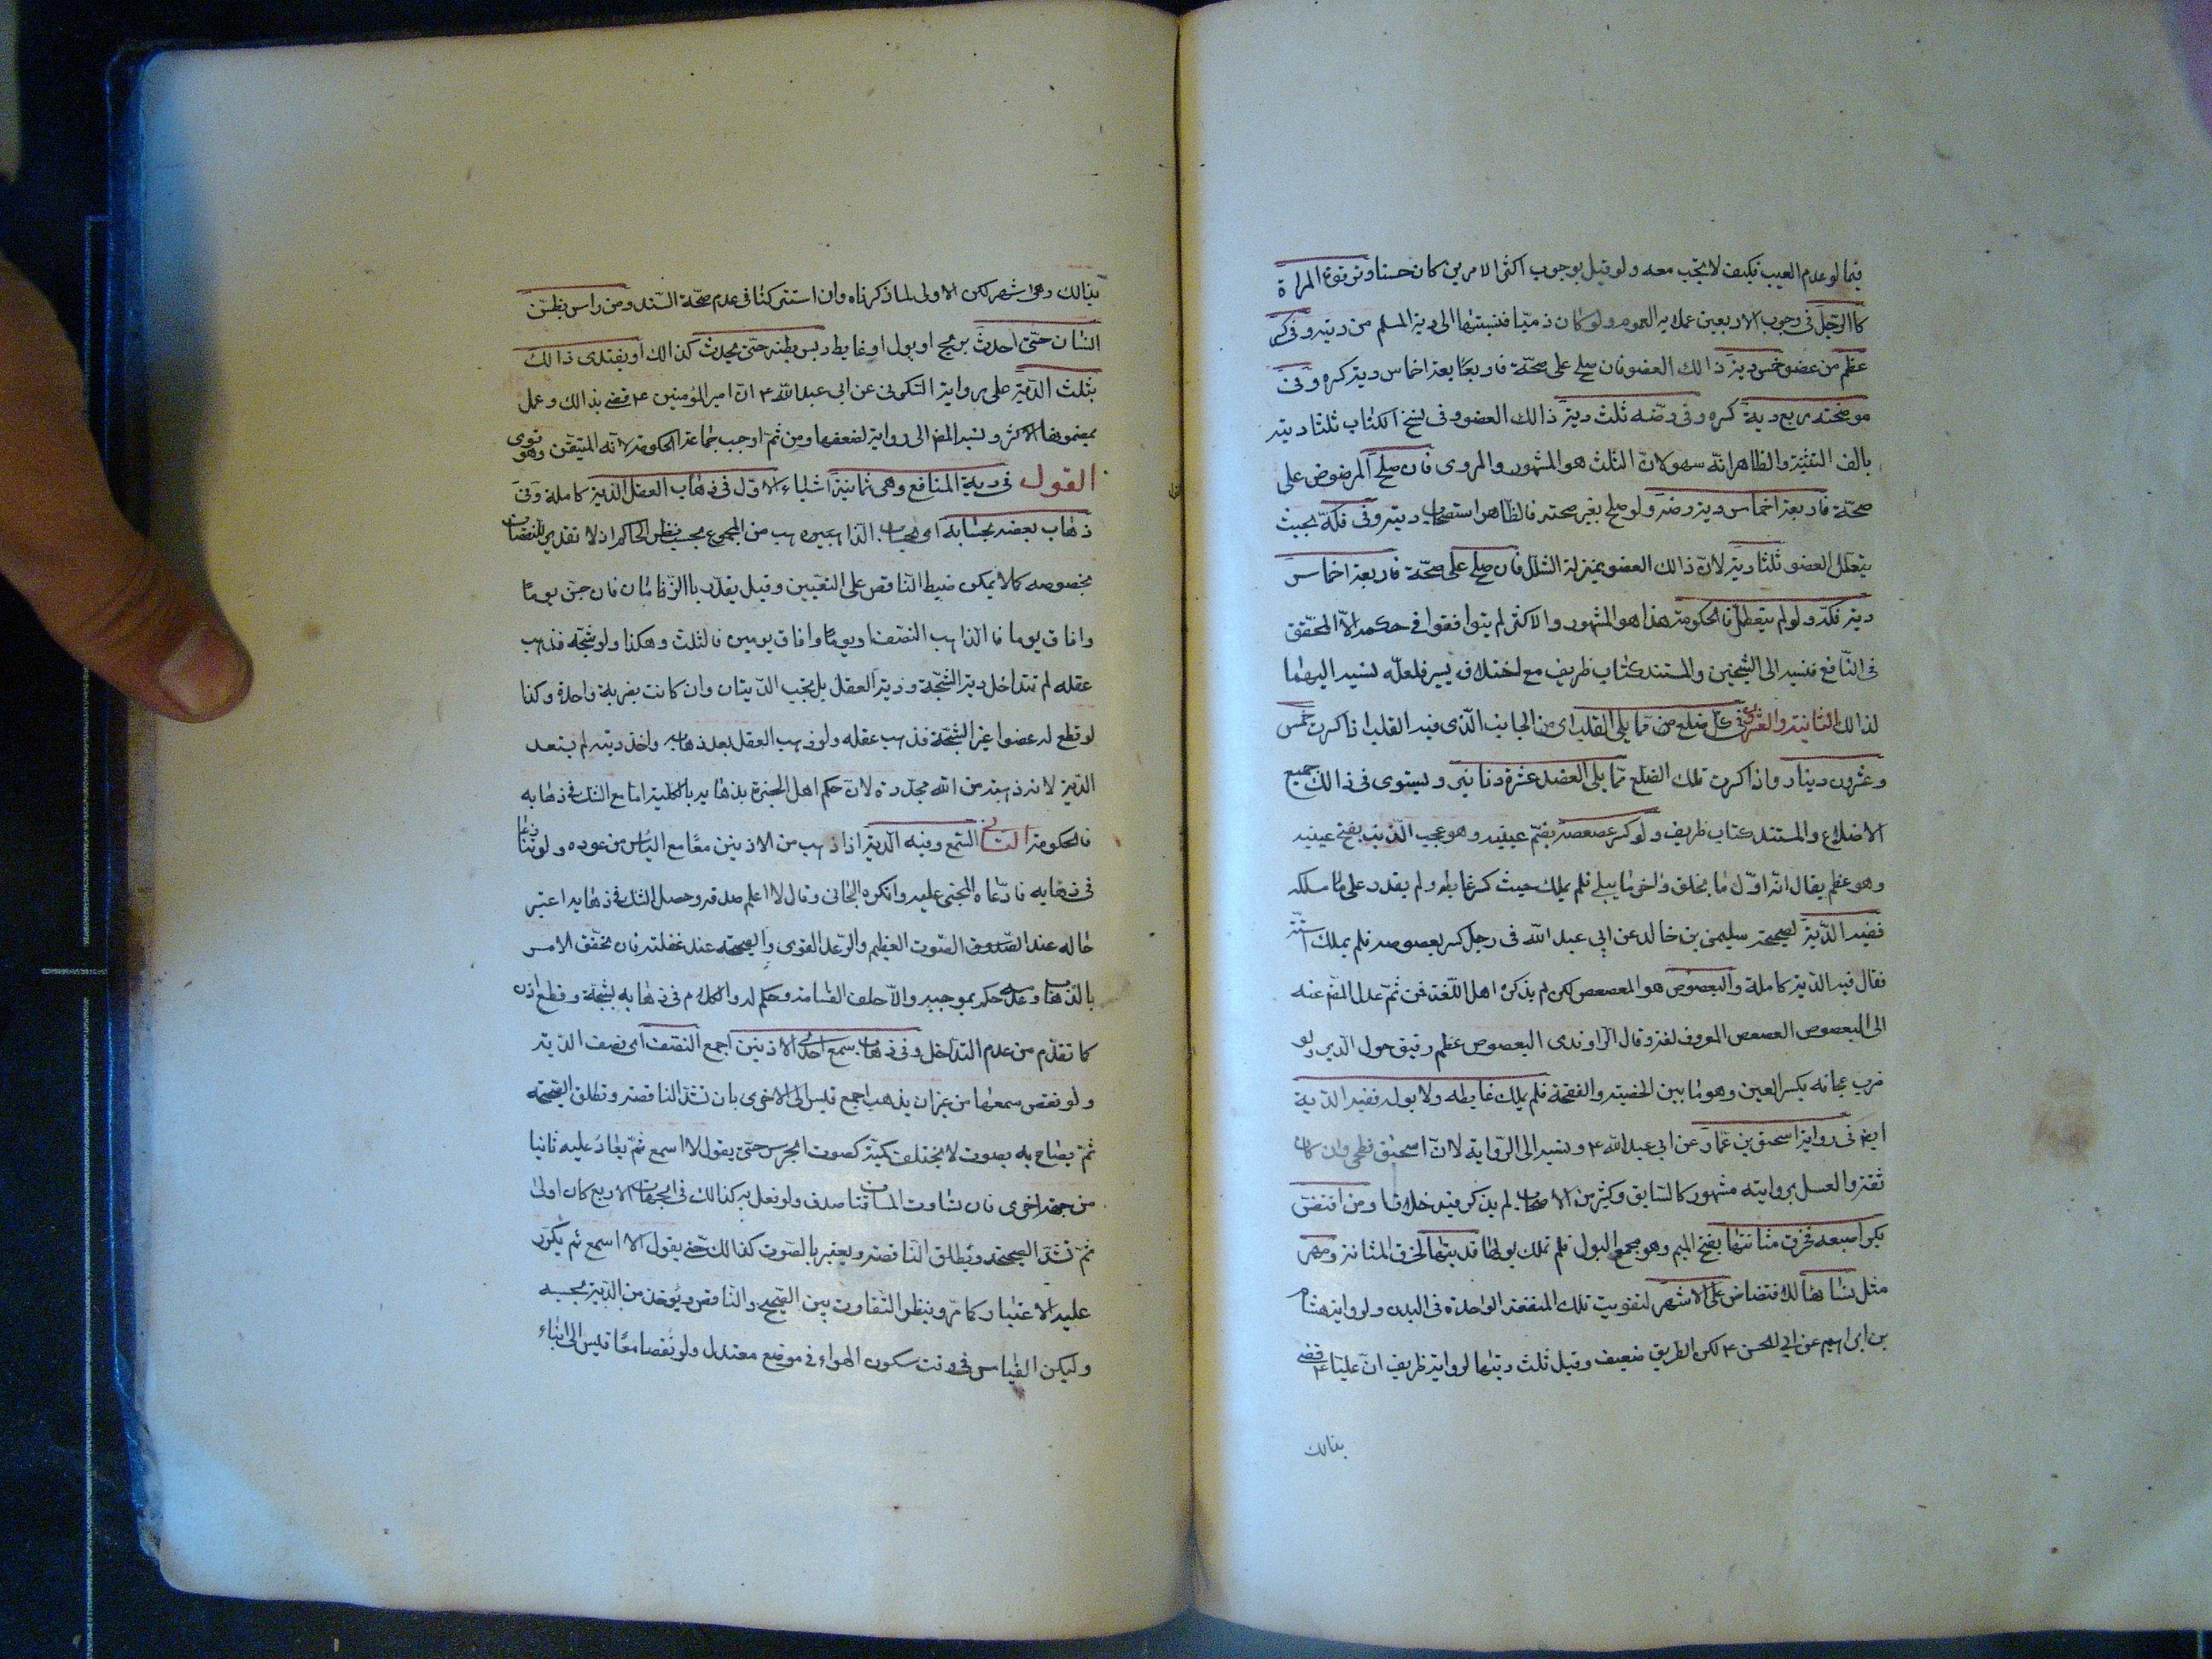 فيما لو عدم العيب فكيف لا يجب معه ولو قيل بوجوب اكثر الامرين كان حسنا وترقوة المراة
كالرجل في وجوب الاربعين عملا بالعموم ولو كان ذميا فنسبتها الى دية المسلم من ديته وفي كسر
عظم من عضو خمس دية ذالك العضو فان صلح على صحة فاربعة اخماس دية كسره وفي
موضحته ربع دية كسره وفي رضه ثلث دية ذالك العضو وفي نسخ الكتاب ثلثا ديته
بالف التثنية والظاهر انه سهو لان الثلث هو المشهور والمروى فان صلح المرضوض على
صحة فاربعة اخماس دية رضه ولو صلح بغير صحة فالظاهر استصحاب ديته وفي فكه بحيث
يتعطل العضو ثلثا دية لان ذالك العضو بمنزلة الشلل فان صلح على صحة فاربعة اخماس
دية فكه ولو لم يتعطل فالحكومة هذا هو المشهور والاكثر لم يتوافقوا في حكمه الا المحقق
في النافع فنسبه الى الشيخين والمستند كتاب ظريف مع اختلاف يسير فلعله نسبه اليهما
لذالك الثانية والعشرون في كل ضلع من مما يلي القلب اى من الجانب الذي فيه القلب اذا كسرت خمس
وعشرون دينار واذا كسرت تلك الضلع مما يلي العضد عشرة دنانير ويستوى في ذالك جميع
الاضلاع والمستند كتاب ظريف ولو كسر عصعصه بضم عينيه وهو عجب الذنب بفتح عينه
وهو عظم يقال انه اول ما يخلق واخر ما يبلى فلم يملك حيث كسر غايطه ولم يقدر على امساكه
ففيه الدية لصحيحة سليمن بن خالد عن ابي عبد الله في رجل كسر بعصوصه فلم يملك استه
فقال فيه الدية كاملة والبعصوص هو العصعص لكن لم يذكره اهل اللغة فمن ثم عدل المص عنه
الى البعصوص العصعص المعروف لغة وقال الراوندى البعصوص عظم رقيق حول الدبر ولو
ضرب عجانه بكسر العين وهو ما بين الخصية والفقحة فلم يملك غايطه ولا بوله ففيه الدية
ايضا في رواية اسحق بن عمار عن ابي عبد الله ع ونسبه الى الرواية لان اسحق فطحى وان كان
ثقة والعمل بروايته مشهور كالسابق وكثير من الاصحاب لم يذكر فيه خلافا ومن افتض
بكرا باصبعه فخرق مثانتها بفتح الميم وهو مجمع البول فلم تملك بولها فديتها لخرق المثانة ومهر
مثل نسائها للافتضاض على الاشهر لتفويت تلك المنفعة الواحدة في البدن ولرواية هشام
بن ابراهيم عن ابي الحسن ع لكن الطريق ضعيف وقيل ثلث ديتها لرواية ظريف ان عليا ع قضى
بذالك
بذالك وهى اشهر لكن الاولى لما ذكرناه وان اشتركتا في عدم صحة السند ومن داس بطن
انسان حتى احدث بريح او بول او غايط ديس بطنه حتى يحدث كذالك او يفتدى ذالك
بثلث الدية على رواية السكونى عن ابي عبد الله ع ان امير المؤمنين ع قضى بذالك وعمل
بمضمونها الاكثر ونسبه المص الى رواية لضعفها ومن ثم اوجب جماعة الحكومة لانه المتيقن وهو قوى
القول في دية المنافع وهى ثمانية اشياء الاول في ذهاب العقل الدية كاملة وفي
ذهاب بعضه بحسابه اى بحساب الذاهب من المجموع بحسب نظر الحاكم اذ لا تقدير للنقصان
بخصوصه كما لا يمكن ضبط الناقص على التعيين وقيل يقدر بالزمان فان جن يوما
وافاق يوما فالذاهب النصف او يوما وافاق يومين فالثلث وهكذا ولو شجه فذهب
عقله لم تتداخل دية الشجة ودية العقل بل يجب الديتان وان كانت بضربة واحدة وكذا
لو قطع له عضوا غير الشجة فذهب عقله ولو ذهب العقل بعد ذهابه واخذ ديته لم يستعد
الدية لانه ذهبة من الله مجددة لان حكم اهل الخبرة بذهابه بالكلية اما مع الشك في ذهابه
فالحكومة الثانى السمع وفيه الدية اذا ذهب من الاذنين معا مع الياس من عوده ولو تنازعا
في ذهابه فادعاه المجنى عليه وانكره الجانى وقال لا اعلم صدقه وحصل الشك في ذهابه اعتبر
حاله عند الصوت العظيم والرعد القوى والصيحة عند غفلته فان تحقق الامر
بالذهاب وعدمه حكم بموجبه والا حلف القسامة وحكم له والكلام في ذهابه بشجة وقطع اذن
كما تقدم من عدم التداخل وفي ذهاب سمع احدى الاذنين اجمع النصف اى نصف الدية
ولو نقص سمعها من غير ان يذهب اجمع قيس الى الاخرى بان تشد الناقصة وتطلق الصحيحة
ثم يصاح به بصوت لا يختلف كمية كصوت الجرس حتى يقول لا اسمع ثم يعاد عليه ثانيا
من جهة اخرى فان تساوت المسافتان صدق ولو فعل به كذالك في الجهات الاربع كان اولى
ثم تشد الصحيحة وتطلق الناقصة ويعتبر بالصوت كذالك حتى يقول لا اسمع ثم يكرر
عليه الاعتبار كما مر وينظر التفاوت بين الصحيحة والناقصة ويؤخذ من الدية بحسبه
وليكن القياس في وقت سكون الهواء في موضع معتدل ولو نقصا معا قيس الى ابناء